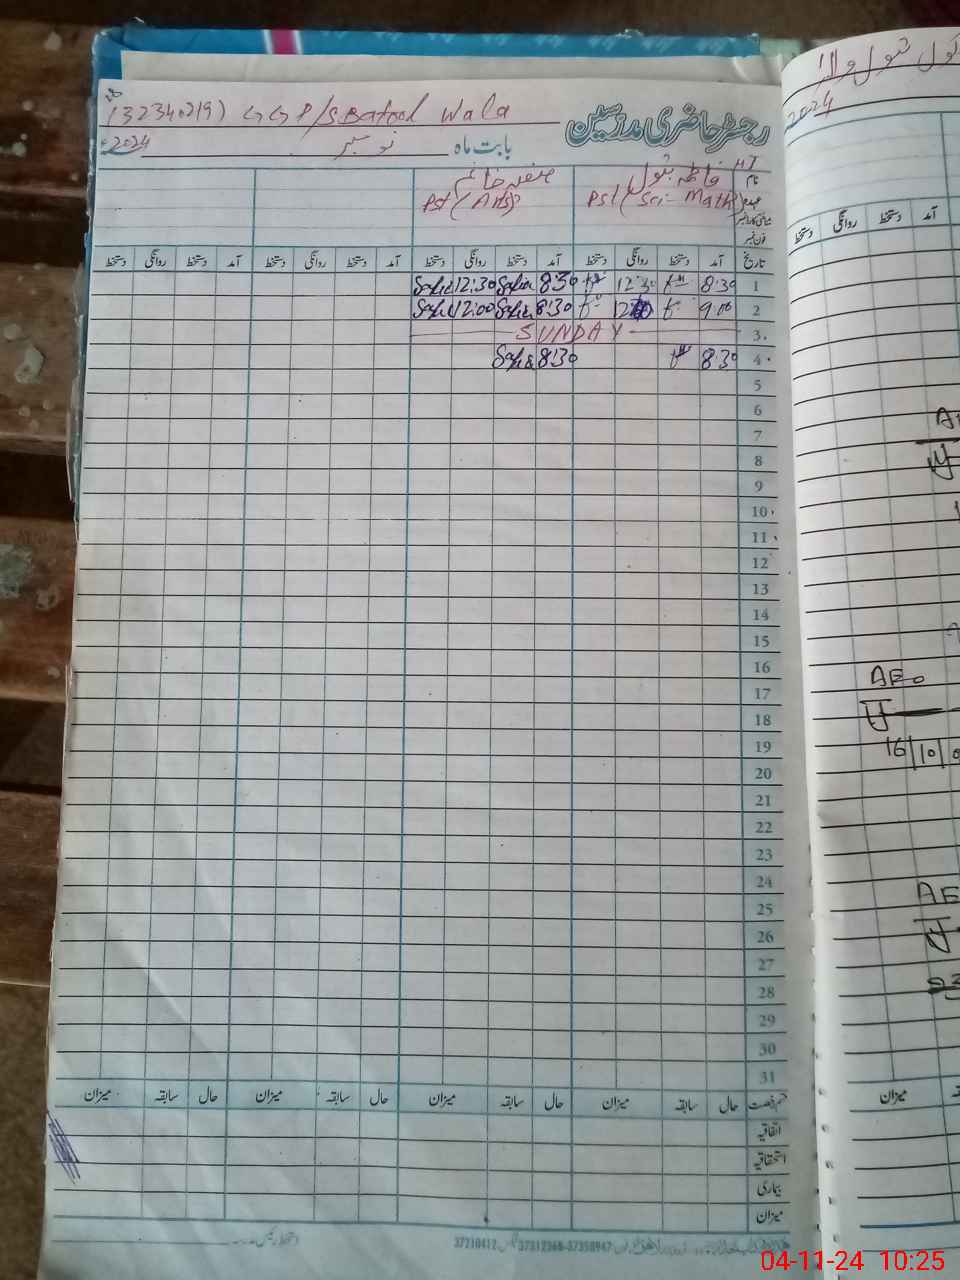 (32340219) GGP/S Batool Wala
رجسٹر حاضری مدرسین
بابت ماہ نومبر 2024ء
HT
نام فاطمہ بتول صفیہ خانم
عہدہ PST (Sci-Math) PST (Arts)
فون نمبر
تاریخ آمد دستخط روانگی دستخط آمد دستخط روانگی دستخط آمد دستخط روانگی دستخط آمد دستخط روانگی دستخط
1 8:30 12:30 8:30 Safia 12:30 Safia
2 9:00 8:30 Safia 12:00 Safia
3 SUNDAY
4 8:30 8:30 Safia
5
6
7
8
9
10
11
12
13
14
15
16
17
18
19
20
21
22
23
24
25
26
27
28
29
30
31
قسم رخصت حال سابقہ میزان حال سابقہ میزان حال سابقہ میزان حال سابقہ میزان
اتفاقیہ
استحقاقیہ
بیماری
میزان
37210412 37312368-37358947
بتول والا
2024
دستخط روانگی دستخط آمد
AEO
16/10
میزان
04-11-24 10:25